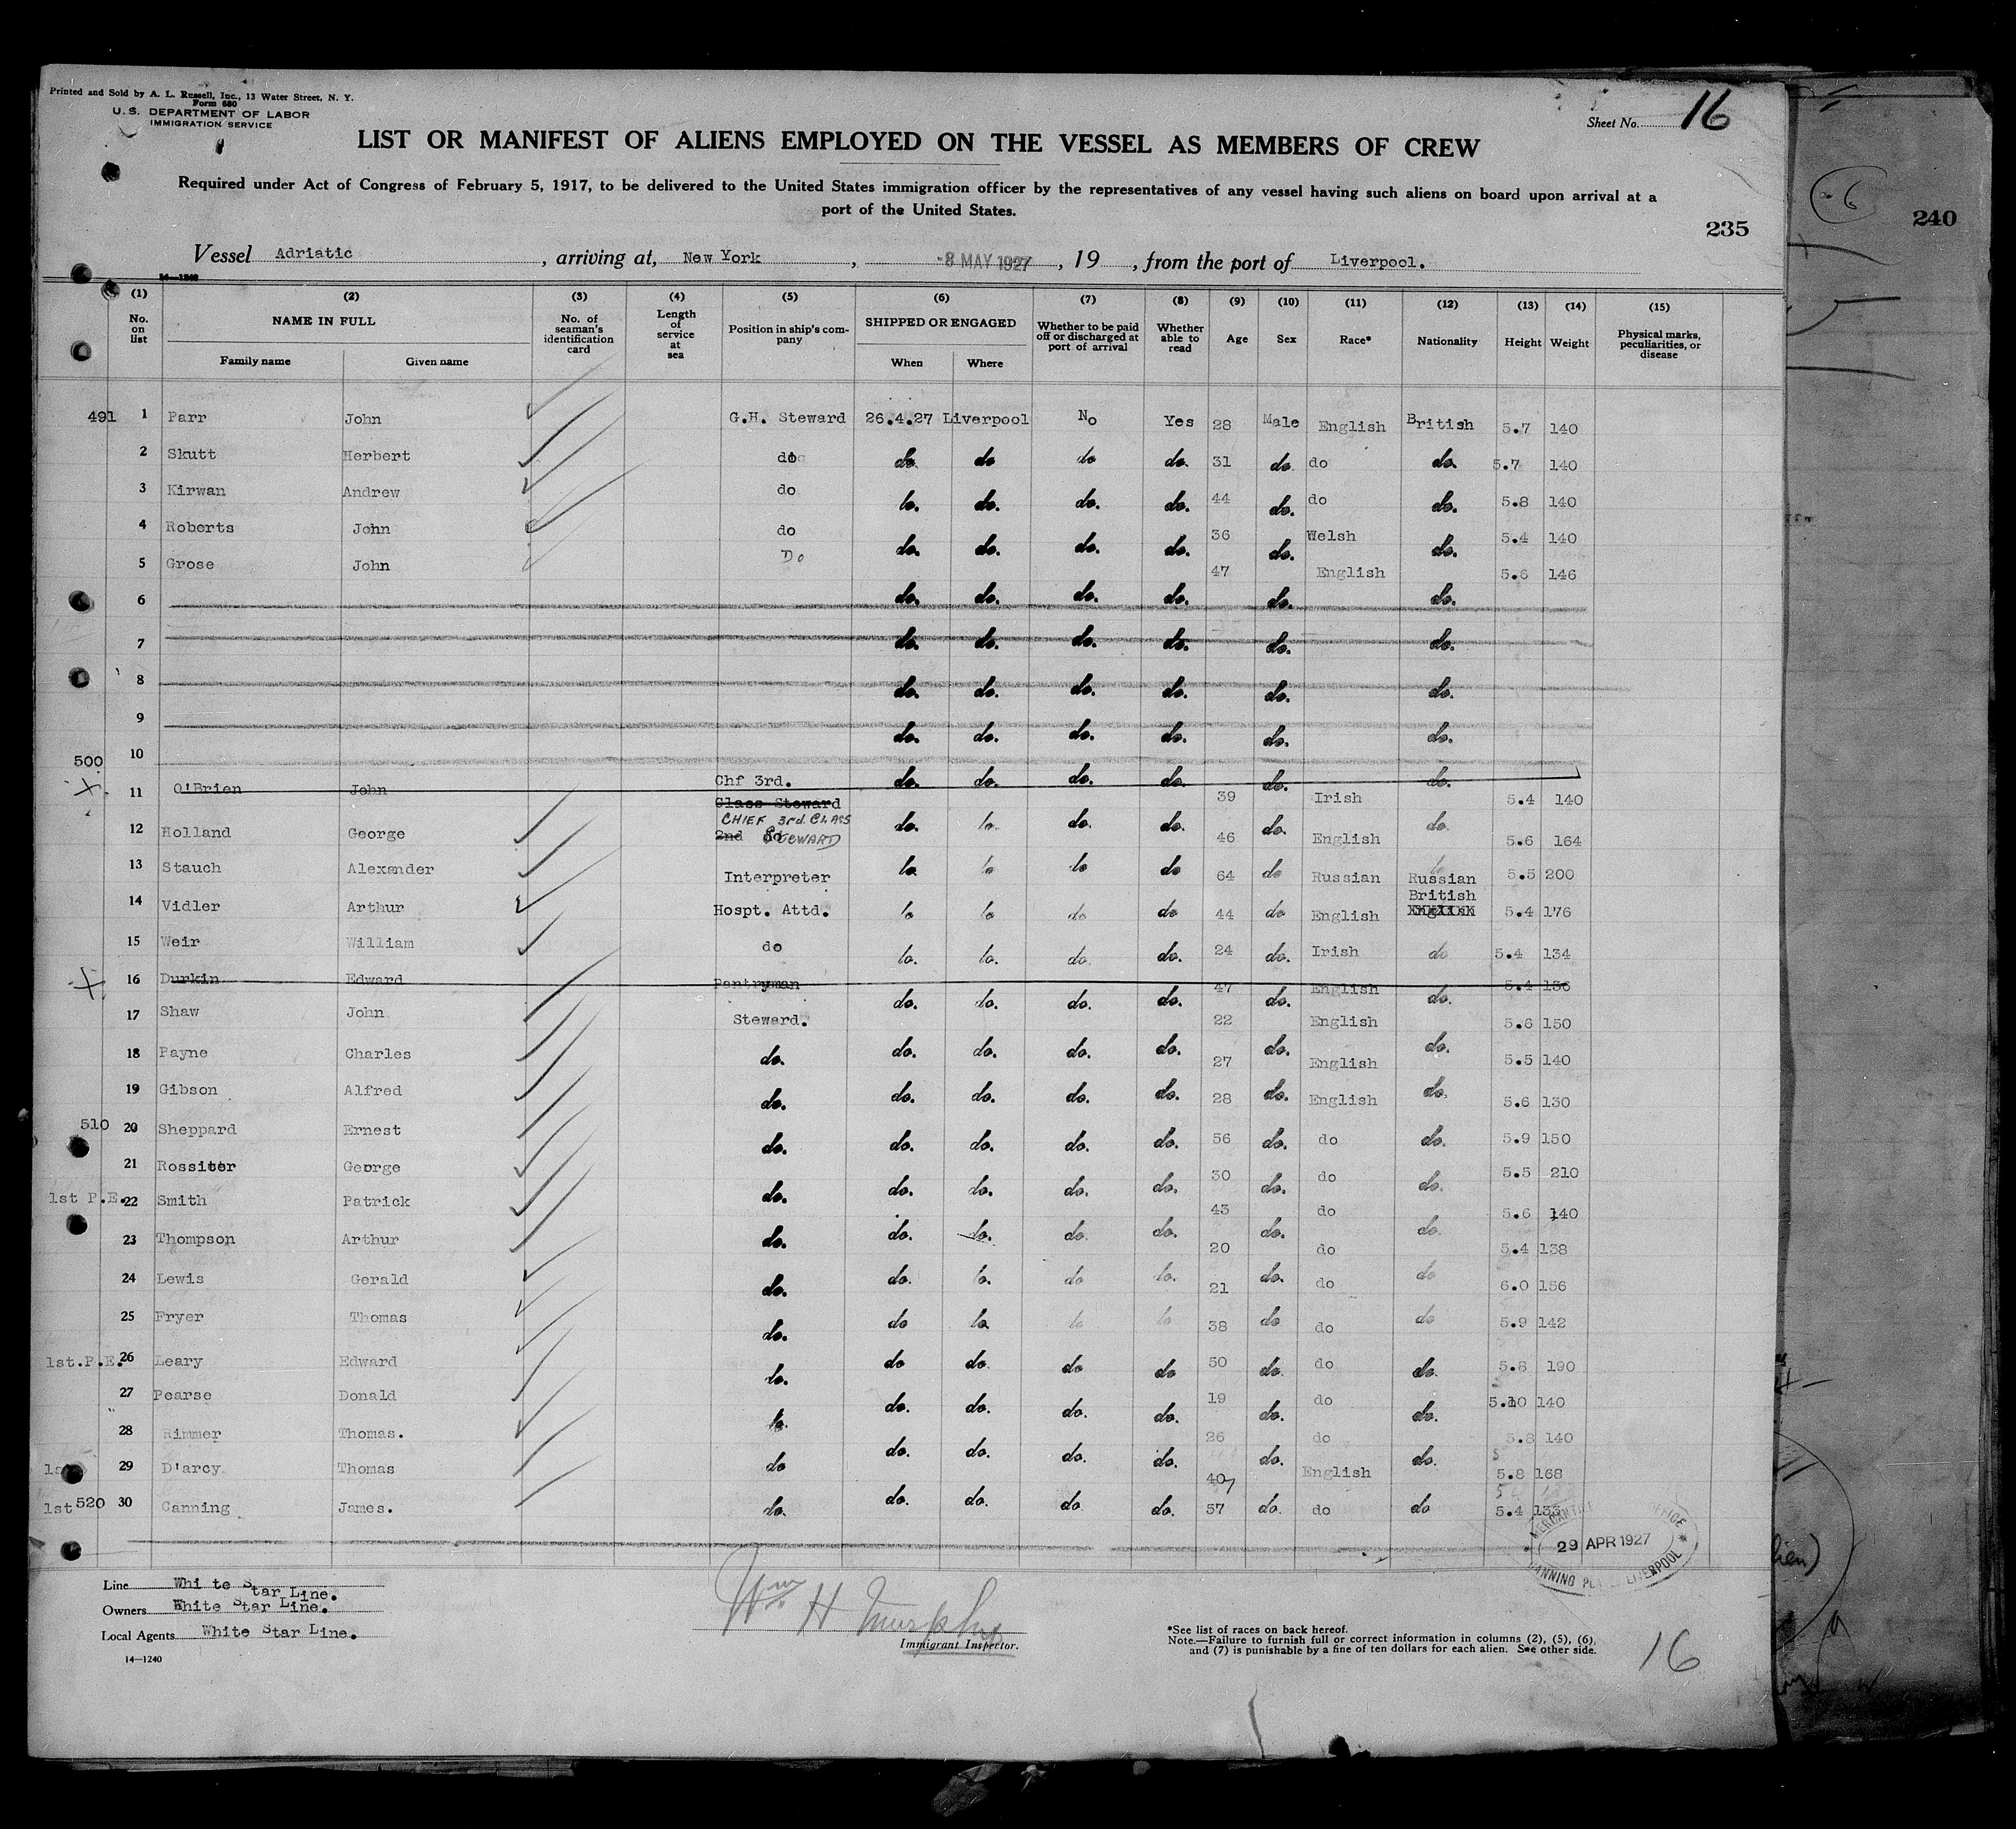 Printed and Sold by A. L. Russell, Inc., 13 Water Street, N. Y.
Form 680
U. S. DEPARTMENT OF LABOR
IMMIGRATION SERVICE
Sheet No. 16
LIST OR MANIFEST OF ALIENS EMPLOYED ON THE VESSEL AS MEMBERS OF CREW
Required under Act of Congress of February 5, 1917, to be delivered to the United States immigration officer by the representatives of any vessel having such aliens on board upon arrival at a
port of the United States.
235
240
Vessel Adriatic, arriving at, New York, -8 MAY 1927, 19 , from the port of Liverpool.
14—1240
(1) (2) (3) (4) (5) (6) (7) (8) (9) (10) (11) (12) (13) (14) (15)
No. on list NAME IN FULL Family name Given name No. of seaman's identification card Length of service at sea Position in ship's company SHIPPED OR ENGAGED When Where Whether to be paid off or discharged at port of arrival Whether able to read Age Sex Race* Nationality Height Weight Physical marks, peculiarities, or disease
491 1 Parr John G.H. Steward 26.4.27 Liverpool No Yes 28 Male English British 5.7 140
2 Skutt Herbert do do. do do do. 31 do. do do. 5.7 140
3 Kirwan Andrew do do. do. do. do. 44 do. do do. 5.8 140
4 Roberts John do do. do. do. do. 36 do. Welsh do. 5.4 140
5 Grose John Do do. do. do. do. 47 do. English do. 5.6 146
6 do. do. do. do. do. do.
7 do. do. do. do. do. do.
8 do. do. do. do. do. do.
9 do. do. do. do. do. do.
500 10
11 O'Brien John Chf 3rd. Class Steward do. do. do. do. 39 do. Irish do. 5.4 140
12 Holland George 2nd do CHIEF 3rd. CLASS STEWARD do. do. do. do. 46 do. English do. 5.6 164
13 Stauch Alexander Interpreter do. do do do 64 do Russian Russian 5.5 200
14 Vidler Arthur Hospt. Attd. do do do do 44 do English British English 5.4 176
15 Weir William do do. do. do. do. 24 do. Irish do 5.4 134
16 Durkin Edward Pantryman do. do. do. do. 47 do. English do. 5.4 136
17 Shaw John Steward. 22 English 5.6 150
18 Payne Charles do. do. do. do. do. 27 do. English do. 5.5 140
19 Gibson Alfred do. do. do. do. do. 28 do. English do. 5.6 130
510 20 Sheppard Ernest do. do. do. do. do. 56 do. do do. 5.9 150
21 Rossiter George do. do. do. do. do. 30 do. do do. 5.5 210
1st P.E. 22 Smith Patrick do. do. do. do. do. 43 do. do do. 5.6 140
23 Thompson Arthur do. do. do. do do. 20 do. do do 5.4 138
24 Lewis Gerald do. do. do. do do. 21 do. do do 6.0 156
25 Fryer Thomas do. do do. do do 38 do do do 5.9 142
1st.P.E. 26 Leary Edward do. do do. do do 50 do. do do. 5.8 190
27 Pearse Donald do. do. do. do. do. 19 do. do do. 5.10 140
28 Rimmer Thomas. do do. do. do. do. 26 do. do do. 5.8 140
29 D'arcy Thomas do 40 English 5.8 168
1st 520 30 Canning James. do. do. do. do do. 57 do. do do 5.4 133
MERCANTILE OFFICE
29 APR 1927
CANNING LIVERPOOL
Line White Star Line.
Owners White Star Line.
Local Agents White Star Line.
14—1240
Wm H Murphy
Immigrant Inspector.
*See list of races on back hereof.
Note.—Failure to furnish full or correct information in columns (2), (5), (6),
and (7) is punishable by a fine of ten dollars for each alien. See other side.
16